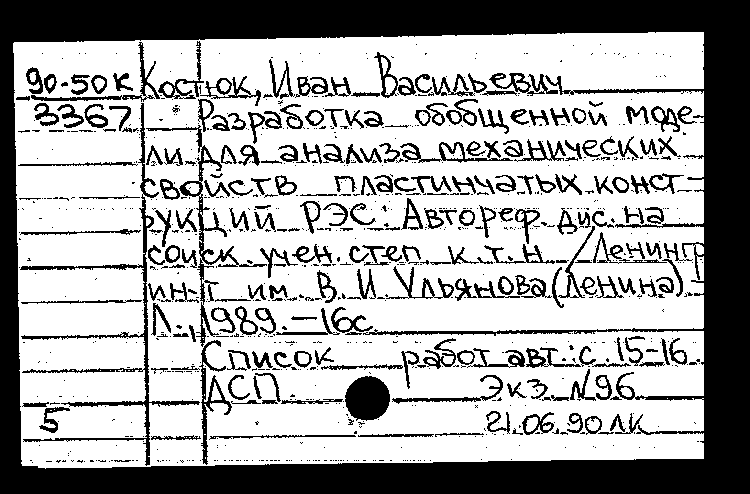 90-50к Костюк, Иван Васильевич
3367 Разработка обобщенной моде-
ли для анализа механических
свойств пластинчатых конст-
рукций РЭС: Автореф. дис. на
соиск. учен. степ. к. т. н. / Ленингр
ин-т им. В. И. Ульянова (Ленина) -
Л., 1989. - 16с
Список работ авт.: с. 15-16.
ДСП Экз. N96
5 21.06.90 ЛК